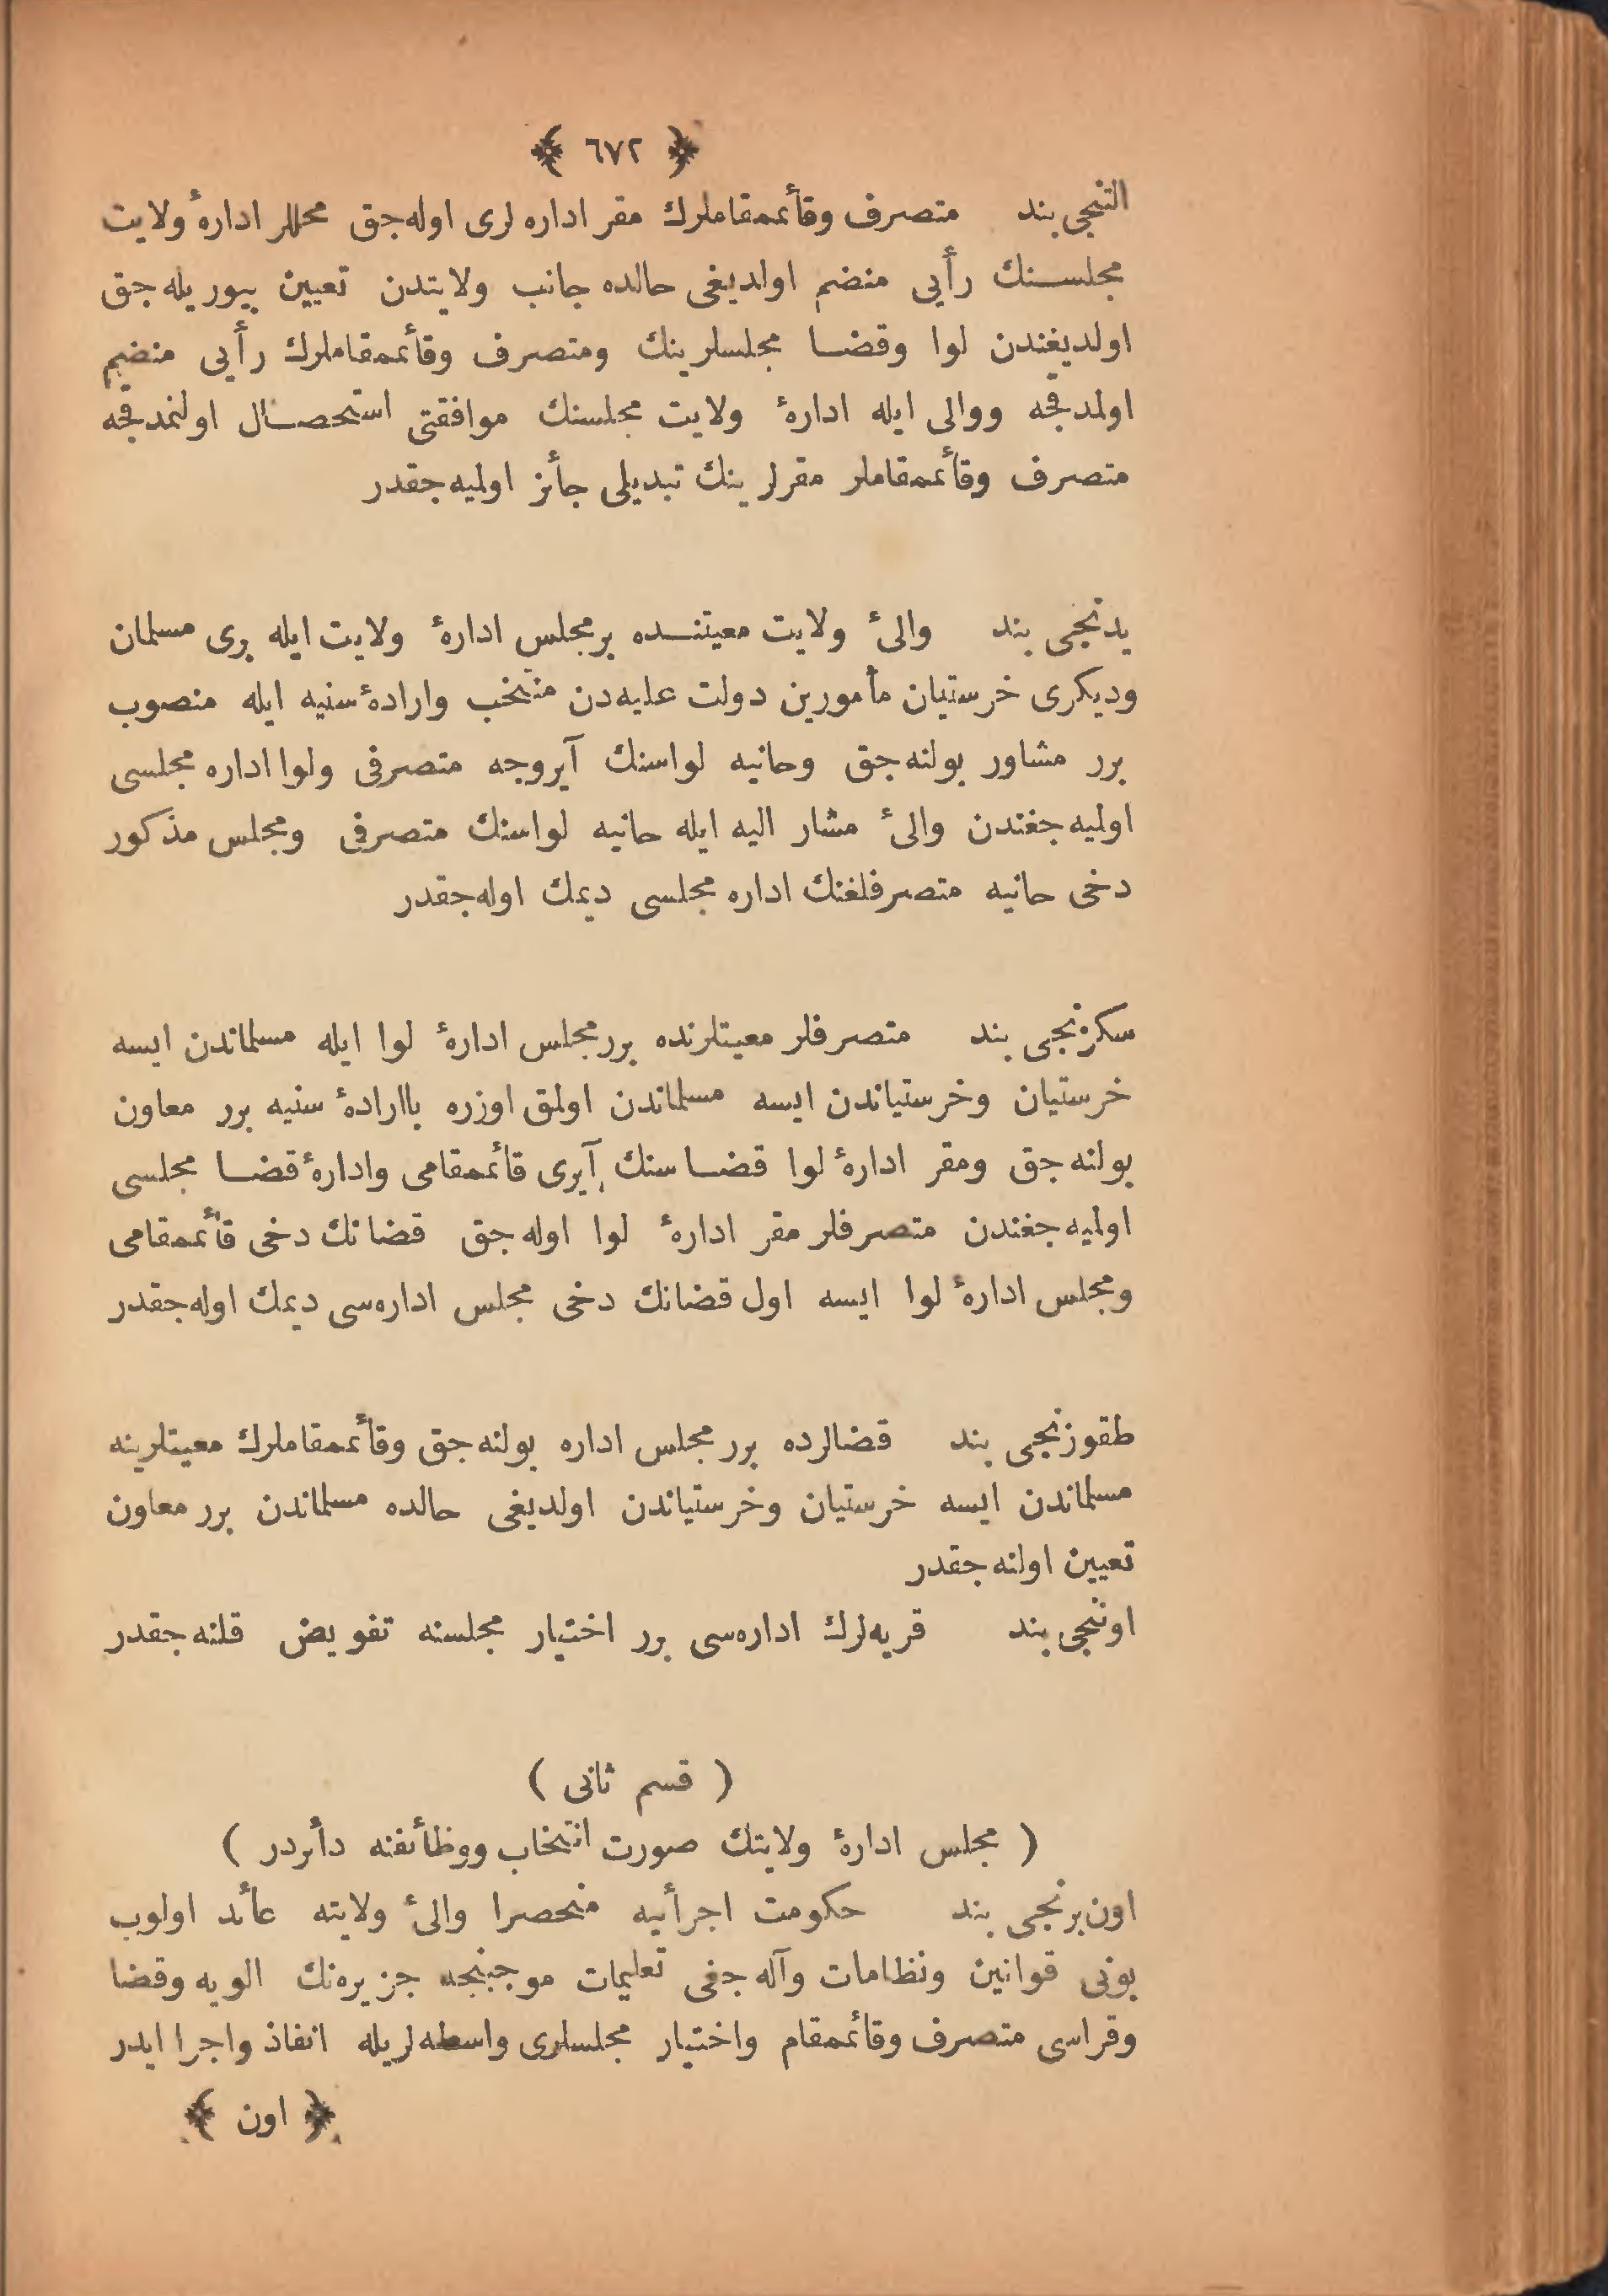 ﴿ ٦٧٢ ﴾
التنجی بند متصرف وقائممقاملرك مقر اداره لری اوله‌جق محللر ادارهٔ ولایت
مجلسنك رأیی منضم اولدیغی حالده جانب ولایتدن تعیین بیوریله‌جق
اولدیغندن لوا وقضا مجلسلرینك ومتصرف وقائممقاملرك رأیی منضم
اولمدقجه ووالی ایله ادارهٔ ولایت مجلسنك موافقتی استحصال اولنمدقجه
متصرف وقائممقاملر مقرلرینك تبدیلی جائز اولمیه‌جقدر
یدنجی بند والیٔ ولایت معیتنده برمجلس ادارهٔ ولایت ایله بری مسلمان
ودیكری خرستیان مأمورین دولت علیه‌دن منتخب وارادهٔ سنیه ایله منصوب
برر مشاور بولنه‌جق وحانیه لواسنك آیروجه متصرفی ولوا اداره مجلسی
اولمیه‌جغندن والیٔ مشار الیه ایله حانیه لواسنك متصرفی ومجلس مذكور
دخی حانیه متصرفلغنك اداره مجلسی دیمك اوله‌جقدر
سكزنجی بند متصرفلر معیتلرنده بررمجلس ادارهٔ لوا ایله مسلماندن ایسه
خرستیان وخرستیاندن ایسه مسلماندن اولمق اوزره باارادهٔ سنیه برر معاون
بولنه‌جق ومقر ادارهٔ لوا قضاسنك آیری قائممقامی وادارهٔ قضا مجلسی
اولمیه‌جغندن متصرفلر مقر ادارهٔ لوا اوله‌جق قضانك دخی قائممقامی
ومجلس ادارهٔ لوا ایسه اول قضانك دخی مجلس اداره‌سی دیمك اوله‌جقدر
طقوزنجی بند قضالرده برر مجلس اداره بولنه‌جق وقائممقاملرك معیتلرینه
مسلماندن ایسه خرستیان وخرستیاندن اولدیغی حالده مسلماندن برر معاون
تعیین اولنه‌جقدر
اوننجی بند قریه‌لرك اداره‌سی برر اختیار مجلسنه تفویض قلنه‌جقدر
( قسم ثانی )
( مجلس ادارهٔ ولایتك صورت انتخاب ووظائفنه دائردر )
اون‌برنجی بند حكومت اجرائیه منحصرا والیٔ ولایته عائد اولوب
بونی قوانین ونظامات وآله‌جغی تعلیمات موجبنجه جزیره‌نك الویه وقضا
وقراسی متصرف وقائممقام واختیار مجلسلری واسطه‌لریله انفاذ واجرا ایدر
﴿ اون ﴾